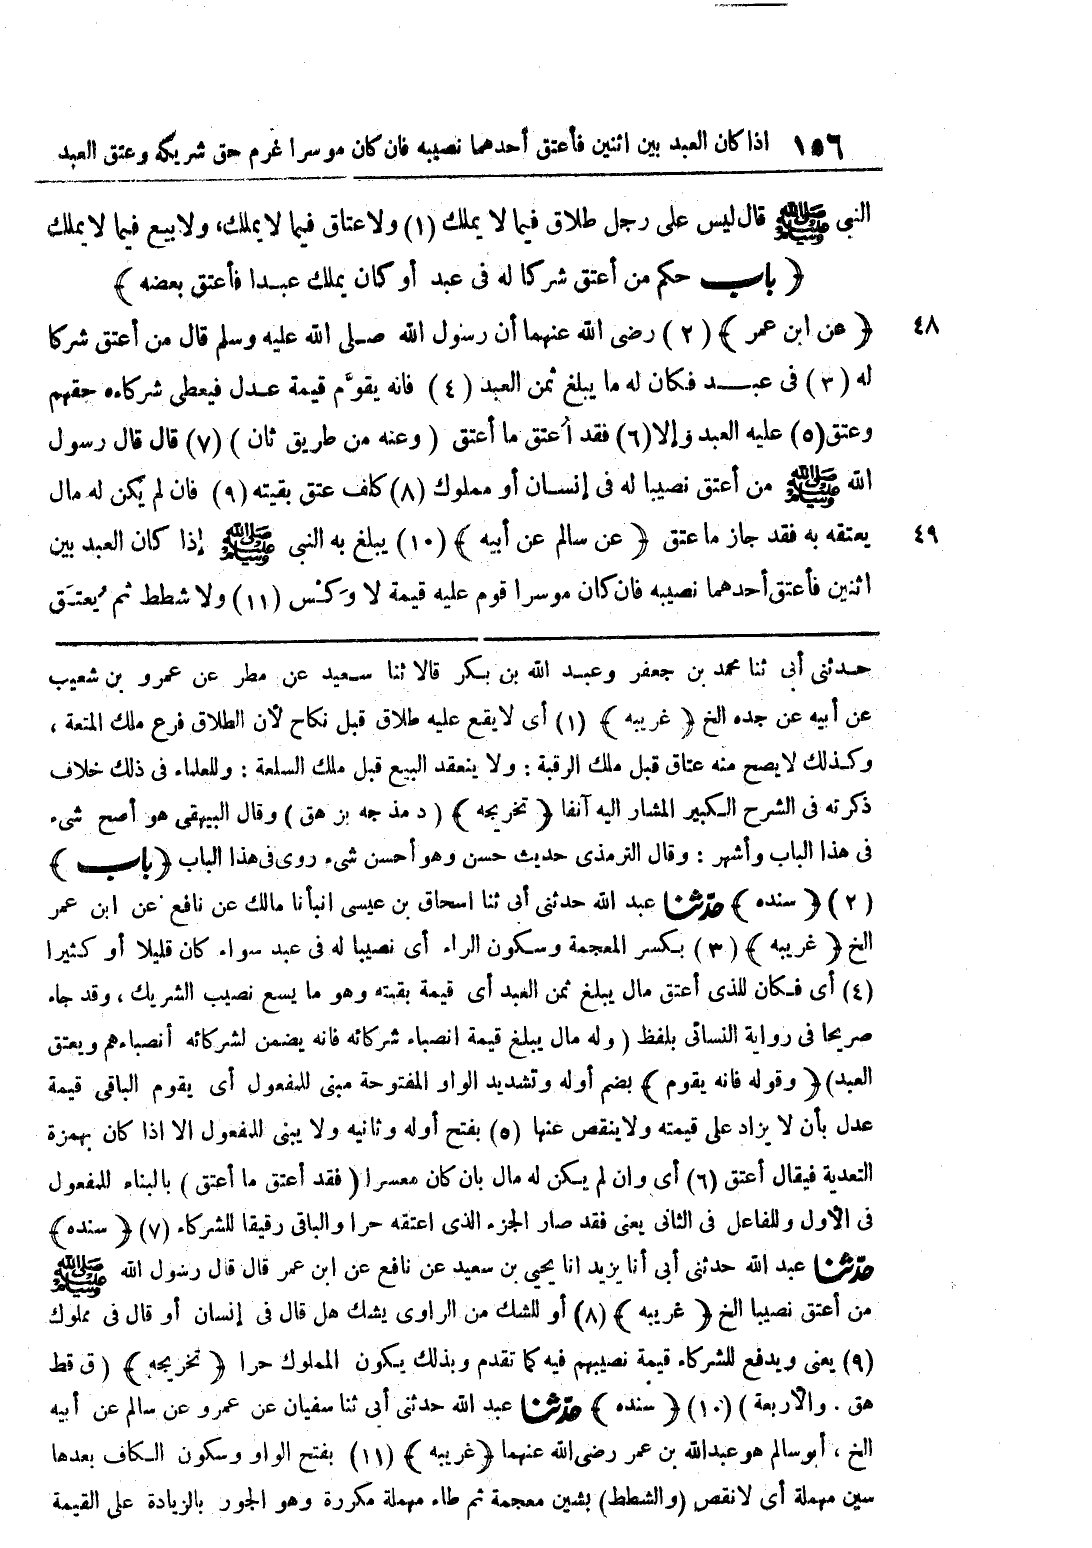 ١٥٦ اذا كان العبد بين اثنين فأعتق أحدهما نصيبه فان كان موسرا غرم حق شريكه وعتق العبد
النبى ﷺ قال ليس على رجل طلاق فيما لا يملك (١) ولا عتاق فيما لا يملك، ولا بيع فيما لا يملك
﴿ باب حكم من أعتق شركا له فى عبد أو كان يملك عبدا فأعتق بعضه ﴾
٤٨ ﴿ عن ابن عمر ﴾ (٢) رضى الله عنهما أن رسول الله صلى الله عليه وسلم قال من أعتق شركا
له (٣) فى عبد فكان له ما يبلغ ثمن العبد (٤) فانه يقوّم قيمة عدل فيعطى شركاءه حقهم
وعتق(٥) عليه العبد وإلا(٦) فقد أعتق ما أعتق ( وعنه من طريق ثان ) (٧) قال قال رسول
الله ﷺ من أعتق نصيبا له فى إنسان أو مملوك (٨) كلف عتق بقيته (٩) فان لم يكن له مال
٤٩ يعتقه به فقد جاز ما عتق ﴿ عن سالم عن أبيه ﴾ (١٠) يبلغ به النبى ﷺ إذا كان العبد بين
اثنين فأعتق أحدهما نصيبه فان كان موسرا قوم عليه قيمة لا وَكْس (١١) ولا شطط ثم يُعتَق
حدثنى أبى ثنا محمد بن جعفر وعبد الله بن بكر قالا ثنا سعيد عن مطر عن عمرو بن شعيب
عن أبيه عن جده الخ ﴿ غريبه ﴾ (١) أى لا يقع عليه طلاق قبل نكاح لأن الطلاق فرع ملك المتعة ،
وكذلك لا يصح منه عتاق قبل ملك الرقبة : ولا ينعقد البيع قبل ملك السلعة : وللعلماء فى ذلك خلاف
ذكرته فى الشرح الكبير المشار اليه آنفا ﴿ تخريجه ﴾ ( د مذ جه بز هق ) وقال البيهقى هو أصح شىء
فى هذا الباب وأشهر : وقال الترمذى حديث حسن وهو أحسن شىء روى فى هذا الباب ﴿ باب ﴾
(٢) ﴿ سنده ﴾ حدّثنا عبد الله حدثنى أبى ثنا اسحاق بن عيسى انبأنا مالك عن نافع عن ابن عمر
الخ ﴿ غريبه ﴾ (٣) بكسر المعجمة وسكون الراء أى نصيبا له فى عبد سواء كان قليلا أو كثيرا
(٤) أى فكان للذى أعتق مال يبلغ ثمن العبد أى قيمة بقيته وهو ما يسع نصيب الشريك ، وقد جاء
صريحا فى رواية النسائى بلفظ ( وله مال يبلغ قيمة انصباء شركائه فانه يضمن لشركائه أنصباءهم ويعتق
العبد) ﴿ وقوله فانه يقوم ﴾ بضم أوله وتشديد الواو المفتوحة مبنى للمفعول أى يقوم الباقى قيمة
عدل بأن لا يزاد على قيمته ولا ينقص عنها (٥) بفتح أوله وثانيه ولا يبنى للمفعول الا اذا كان بهمزة
التعدية فيقال أعتق (٦) أى وان لم يكن له مال بان كان معسرا ( فقد أعتق ما أعتق ) بالبناء للمفعول
فى الأول وللفاعل فى الثانى يعنى فقد صار الجزء الذى اعتقه حرا والباقى رقيقا للشركاء (٧) ﴿ سنده ﴾
حدّثنا عبد الله حدثنى أبى أنا يزيد انا يحيى بن سعيد عن نافع عن ابن عمر قال قال رسول الله ﷺ
من أعتق نصيبا الخ ﴿ غريبه ﴾ (٨) أو للشك من الراوى يشك هل قال فى إنسان أو قال فى مملوك
(٩) يعنى ويدفع للشركاء قيمة نصيبهم فيه كما تقدم وبذلك يكون المملوك حرا ﴿ تخريجه ﴾ ( ق قط
هق . والأربعة ) (١٠) ﴿ سنده ﴾ حدّثنا عبد الله حدثنى أبى ثنا سفيان عن عمرو عن سالم عن أبيه
الخ ، أبو سالم هو عبدالله بن عمر رضى الله عنهما ﴿ غريبه ﴾ (١١) بفتح الواو وسكون الكاف بعدها
سين مهملة أى لا نقص (والشطط) بشين معجمة ثم طاء مهملة مكررة وهو الجور بالزيادة على القيمة